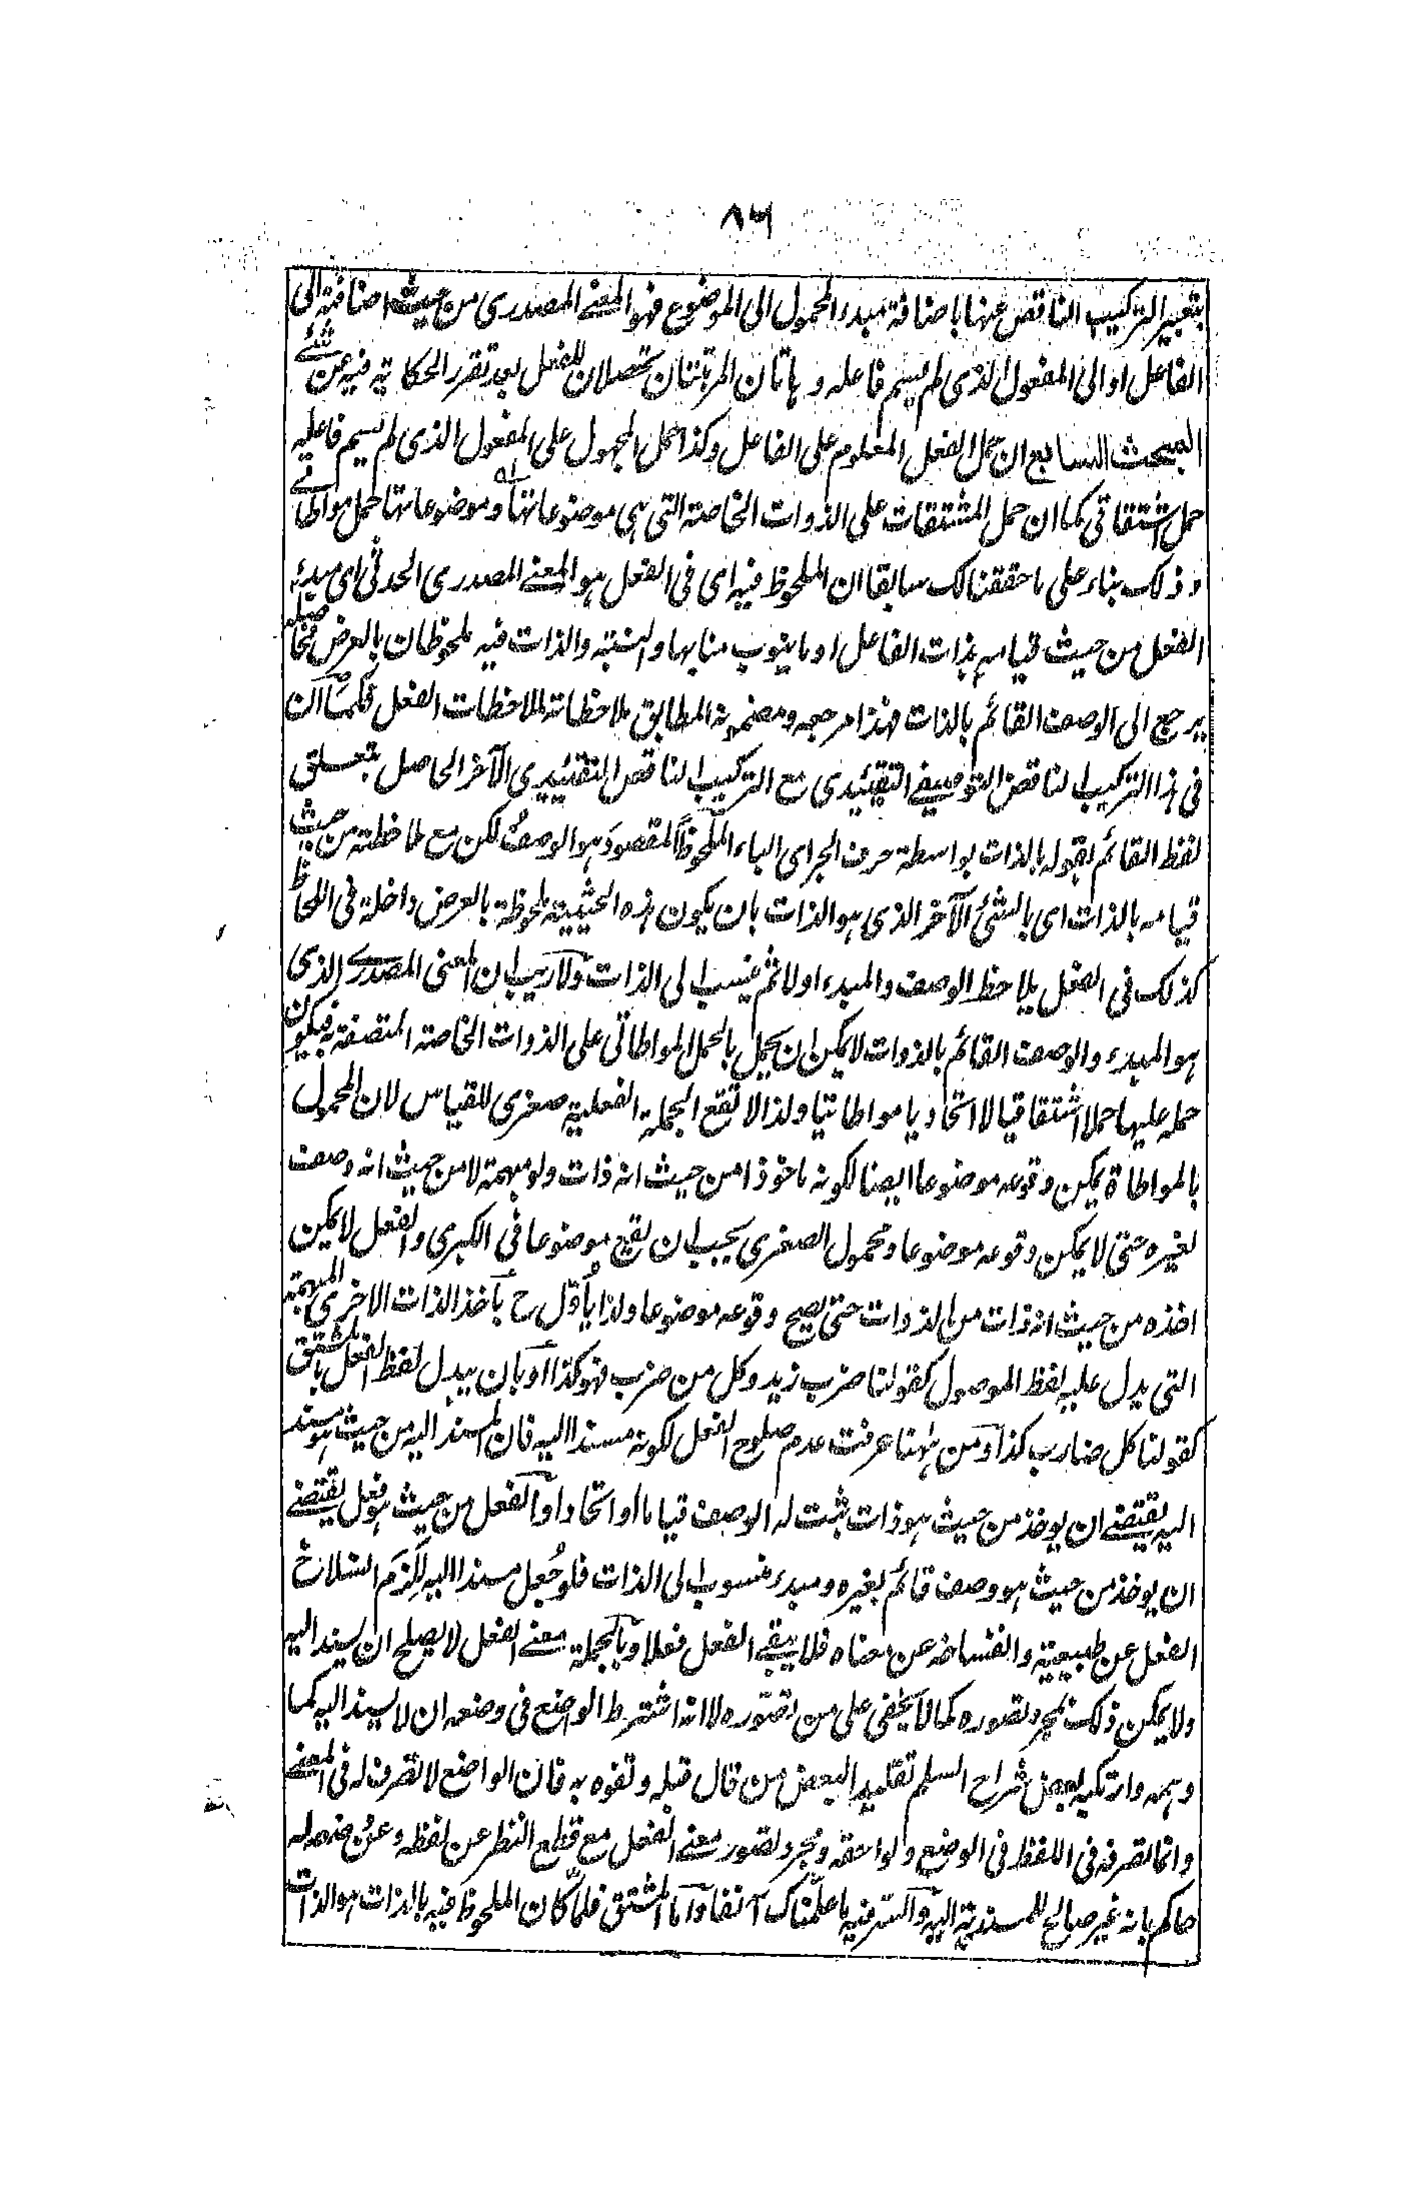 ٨٦
بتعبير التركيب الناقص عنها باضافة مبدء المحمول الى الموضوع فهو المعنے المصدرى من حيث اضافته الى
الفاعل او الى المفعول الذى لم يسم فاعله و ہاتان المرتبتان تحصلان للفعل بعد تقرر الحكاية فيه عن شئے
المبحث السابع ان حمل الفعل المعلوم على الفاعل وكذا حمل المجهول على المفعول الذى لم يسم فاعليه
حمل اشتقاقى كما ان حمل المشتقات على الذوات الخاصة التى ہى موضوعاتها وموضوعاتها حمل مواطاتے
و ذلک بناء على ما حققنا لک سابقا ان الملحوظ فيه اى فى الفعل ہو المعنے المصدرى الحدثى اى مبدء
الفعل من حيث قيامه بذات الفاعل او ما ينوب منابها والنسبة والذات فيه ملحوظان بالعرض
يرجع الى الوصف القائم بالذات فهذا مرجعه ومضمونه المطابق ملاحظاته لملاحظات الفعل فكما ان
فى ہذا التركيب الناقص التوصيفے التقييدى مع التركيب الناقص التقييدى الآخر الحاصل بتعلق
لفظ القائم بقوله بالذات بواسطة حرف الجر اى الباء الملحوظ المقصود ہو الوصف لكن مع ملاحظته من حيث
قيامه بالذات اى بالشئ الآخر الذى ہو الذات بان يكون ہذه الحيثية ملحوظة بالعرض داخلة فى اللحاظ
كذلک فى الفعل يلاحظ الوصف والمبدء اولا ثم ينسب الى الذات ولا ريب ان المعنى المصدرے الذى
ہو المبدء والوصف القائم بالذوات لا يمكن ان يحمل بالحمل المواطاتى على الذوات الخاصة المتصفة به فيكون
حمله عليها حملا اشتقاقيا لا اتحاديا مواطاتيا ولذا لا تقع الجملة الفعلية صغرى للقياس لان المحمول
بالمواطاة يمكن وقوعه موضوعا ايضا لكونه ماخوذا من حيث انه ذات ولو مبهمة لا من حيث انه وصف
لغيره حتى لا يمكن وقوعه موضوعا ومحمول الصغرى يجب ان يقع موضوعا فى الكبرى والفعل لا يمكن
اخذه من حيث انه ذات من الذوات حتى يصح وقوعه موضوعا ولذا يأول ح بأخذ الذات الاخرى المبهمة
التى يدل عليه لفظ الموصول كقولنا ضرب زيد وكل من ضرب فهو كذا أو بان يبدل لفظ الفعل بالمشتق
كقولنا كل ضارب كذا ومن ہٰہنا عرفت عدم صلوح الفعل لكونه مسندا اليه فان المسند اليه من حيث ہو مسند
اليه يقتضے ان يوخذ من حيث ہو ذات ثبت له الوصف قياما او اتحادا والفعل من حيث ہو فعل يقتضے
ان يوخذ من حيث ہو وصف قائم بغيره ومبدء منسوب الى الذات فلو جُعل مسندا اليه لَلَزِم انسلاخ
الفعل عن طبيعية وانفساخه عن معناه فلا يبقے الفعل فعلا وبالجملة معنے الفعل لا يصلح ان يسند اليه
ولا يمكن ذلک بمجرد تصوره كما لا يخفى على من تصوره لا انه اشترط الواضع فى وضعه ان لا يسند اليه كما
وہمه وارتكبه بعض شراح السلم تقليد البعض من قال قبله وتفوه به فان الواضع لا تصرف له فى المعنے
وانما تصرفه فى اللفظ فى الوضع ولواحقه ومجرد تصور معنے الفعل مع قطع النظر عن لفظه وعن وضعه له
حاكم بانه غير صالح للمسندية اليه والسر فيه ما علمناک آنفا واما المشتق فلما كان الملحوظ فيه بالذات ہو الذات